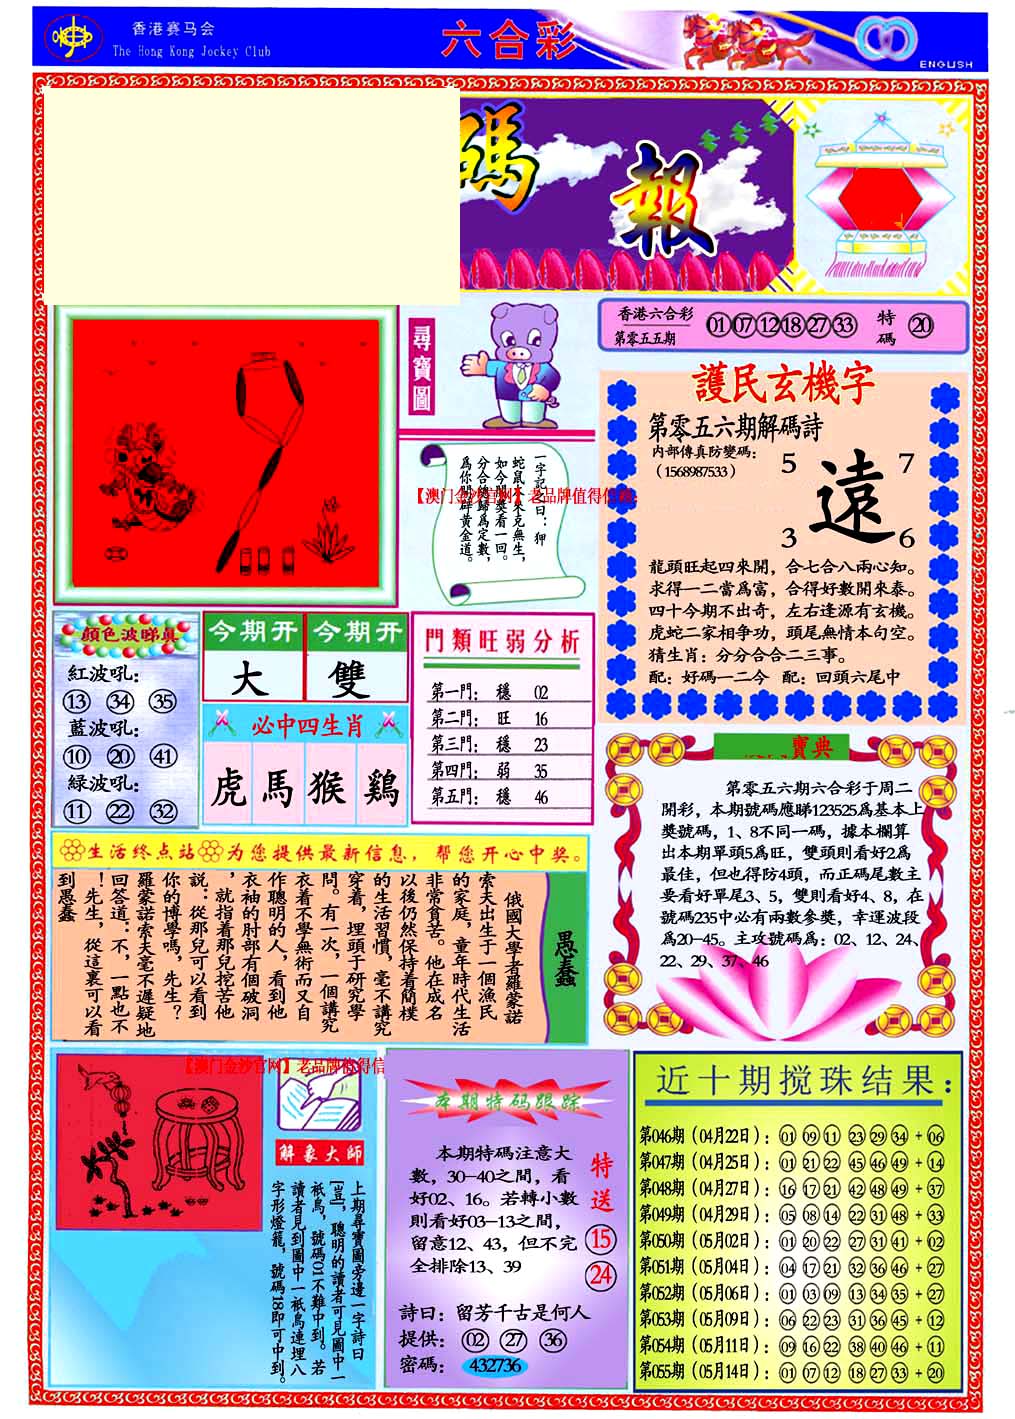 香港赛马会
The Hong Kong Jockey Club
六合彩
ENGLISH
碼 報
尋寶圖
香港六合彩
第零五五期
01 07 12 18 27 33
特碼
20
護民玄機字
第零五六期解碼詩
内部傳真防變碼：
（1568987533）
5 7
遠
3 6
龍頭旺起四來開，合七合八兩心知。
求得一二當爲富，合得好數開來泰。
四十今期不出奇，左右逢源有玄機。
虎蛇二家相争功，頭尾無情本句空。
猜生肖：分分合合二三事。
配：好碼一二今 配：回頭六尾中
一字記之曰：狎
蛇鼠
來克無生，
如今開獎看一回。
分合總歸爲定數，
爲你開辟黄金道。
【澳门金沙官网】老品牌值得信赖
顔色波睇真
紅波吼：
13 34 35
藍波吼：
10 20 41
緑波吼：
11 22 32
今期开 今期开
大 雙
必中四生肖
虎 馬 猴 鷄
門類旺弱分析
第一門： 穩 02
第二門： 旺 16
第三門： 穩 23
第四門： 弱 35
第五門： 穩 46
寶典
第零五六期六合彩于周二
開彩，本期號碼應睇123525爲基本上
獎號碼，1、8不同一碼，據本欄算
出本期單頭5爲旺，雙頭則看好2爲
最佳，但也得防4頭，而正碼尾數主
要看好單尾3、5，雙則看好4、8，在
號碼235中必有兩數参獎，幸運波段
爲20-45。主攻號碼爲：02、12、24、
22、29、37、46
生活终点站 为您提供最新信息，帮您开心中奖。
愚蠢
俄國大學者羅蒙諾
索夫出生于一個漁民
的家庭，童年時代生活
非常貧苦。他在成名
以後仍然保持着簡樸
的生活習慣，毫不講究
穿着，埋頭于研究學
問。有一次，一個講究
衣着不學無術而又自
作聰明的人，看到他
衣袖的肘部有個破洞
，就指着那兒挖苦他
説：從那兒可以看到
你的博學嗎，先生？
羅蒙諾索夫毫不遲疑地
回答道：不，一點也不
！先生，從這裏可以看
到愚蠢
【澳门金沙官网】老品牌值得信
解象大師
上期尋寶圖旁邊一字詩曰
[豈]，聰明的讀者可見圖中一
祇鳥，號碼01不難中到。若
讀者見到圖中一祇鳥連埋八
字形燈籠，號碼18即可中到。
本期特码跟踪
本期特碼注意大
數，30-40之間，看
好02、16。若轉小數
則看好03-13之間，
留意12、43，但不完
全排除13、39
特送
15
24
詩曰：留芳千古是何人
提供： 02 27 36
密碼： 432736
近十期搅珠结果：
第046期（04月22日）：01 09 11 23 29 34 + 06
第047期（04月25日）：01 21 22 45 46 49 + 14
第048期（04月27日）：16 17 21 42 48 49 + 37
第049期（04月29日）：05 08 14 22 31 48 + 33
第050期（05月02日）：01 20 22 27 31 41 + 02
第051期（05月04日）：04 17 21 32 36 46 + 27
第052期（05月06日）：01 03 09 13 34 35 + 27
第053期（05月09日）：06 22 23 31 36 45 + 12
第054期（05月11日）：09 16 22 38 40 46 + 11
第055期（05月14日）：01 07 12 18 27 33 + 20